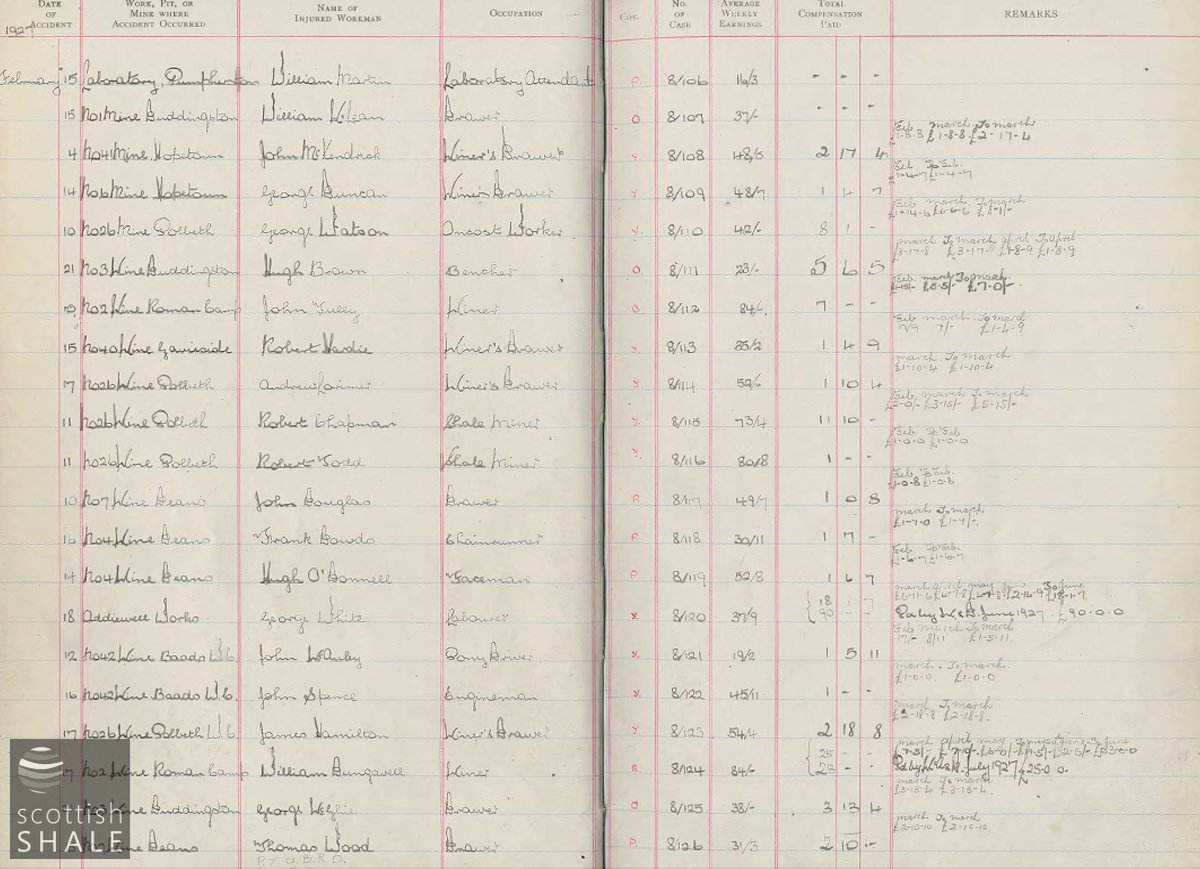 DATE OF ACCIDENT WORK, PIT, OR MINE WHERE ACCIDENT OCCURRED NAME OF INJURED WORKMAN OCCUPATION Coy. No. OF CASE AVERAGE WEEKLY EARNINGS TOTAL COMPENSATION PAID REMARKS
1927
February 15 Laboratory, Pumpherston William Martin Laboratory Attendant P. 8/106 16/3 - - -
15 No1 Mine Duddingston William McLean Drawer O. 8/107 37/- - - -
Feb. March. To March
£1-8-8 £1-8-8 £2-17-4
4 No41 Mine Hopetoun John McKendrick Miner's Drawer Y. 8/108 48/5 2 17 4
Feb. To Feb.
£1-4-7 £1-4-7
14 No6 Mine Hopetoun George Duncan Miner's Drawer Y. 8/109 48/7 1 4 7
Feb. March. To March
£1-14-6 £6-6-6 £8-1/-
10 No26 Mine Polbeth George Watson Oncost Worker Y. 8/110 42/- 8 1 -
March To March April To April
£3-17-8 £3-17- £1-8-9 £1-8-9
21 No3 Mine Duddingston Hugh Brown Bencher O. 8/111 23/- 5 6 5
Feb. March To March.
£5-5/- £7-0/-
No2 Mine Roman Camp John Tully Miner 8/112 84/- 7 - -
Feb. March To March
17/9 7/- £1-4-9
15 No40 Mine Gavieside Robert Hardie Miner's Drawer Y. 8/113 35/2 1 4 9
March. To March
£1-10-4 £1-10-4
17 No26 Mine Polbeth Andrew Lorimer Miner's Drawer Y. 8/114 52/6 1 10 4
Feb. March To March
£2-0/- £3-15/- £5-15/-
11 No26 Mine Polbeth Robert Chapman Shale Miner Y. 8/115 73/4 11 10 -
Feb. To Feb.
£1-0-0 £1-0-0
11 No26 Mine Polbeth Robert Todd Shale Miner Y. 8/116 80/8 1 - -
Feb. To Feb.
£1-0-8 £1-0-8
10 No7 Mine Breich John Douglas Drawer P. 8/117 49/7 1 0 8
March To March
£1-7-0 £1-7/-
16 No4 Mine Deans Frank Dowds Chainrunner P. 8/118 30/11 1 7 -
Feb. To Feb.
£1-6-7 £1-6-7
14 No4 Mine Deans Hugh O'Donnell Faceman P. 8/119 52/8 1 6 7
March April May June To June
£6-11-6 £2-14-9 £18-1-7
18 Addiewell Works George White Labourer Y. 8/120 37/9 18 1 7
90 - - Pa by L.S. June 1927 £90-0-0
Feb March To March
17/- 8/11 £1-5-11
12 No42 Mine Baads W.C. John McAuley Pony Driver Y. 8/121 19/2 1 5 11
March. To March.
£1-0-0. £1-0-0
16 No42 Mine Baads W.C. John Spence Engineman Y. 8/122 45/11 1 - -
March To March
£2-18-8 £2-18-8.
17 No26 Mine Polbeth W.C. James Hamilton Miner's Drawer Y. 8/123 54/4 2 18 8
March. April May To June
No2 Mine Roman Camp William Dungavell Miner 8/124 84/6 25 - -
Pa by L.S. July 1927 £25 0 0.
March To March
£3-13-4 £3-13-4
Mine Duddingston George Drawer O 8/125 38/- 3 13 4
March To March
£2-10-10 £2-10-10
Mine Deans Thomas Wood Drawer P. 8/126 31/3 2 10 -
P.Y.O.B.R.D.
scottish
SHALE